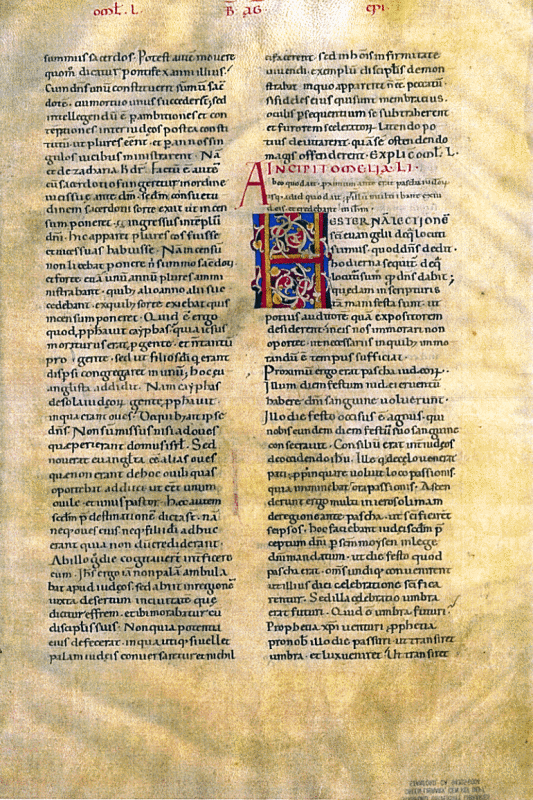 oml. L. B AG
summus sacerdos. Potest autē movere
quom̄ dicatur pontifex anni illius;
Cum dn̄s unū constituerit sumū sac̄
dotē. cui mortuo unus succederet; sed
intellegendū ē p ambitiones et con
tentiones inter iudeos postea consti
tutū ut plures eent. et p annos sin
gulos vicibus ministrarent. Nā
et de zacharia
cū sacerdotio fungeretur in ordine
vicis suę ante dm̄. sedm̄ consuetu
dinem sacerdotii sorte exiit ut incen
sum poneret. ingressus in templū
dn̄i. hic apparet plures eos fuisse
et vices suas habuisse. Nam censū
non licebat ponere n̄ summo sacdoti
et forte etiā unū annū plures ammi
nistrabant. quib; alio anno alii suc
cedebant. ex quib; sorte exiebat qui
incensum poneret. Quid ē ergo
quod pphavit cayphas; quia ih̄s
moriturus erat p gente. et n̄ tantū
pro gente. sed ut filios dī qui erant
dispsi congregaret in unū; hoc eu
anglista addidit. Nam cayphas
de sola iudeorū gente pphavit.
in qua erant oves. De quib; ait ipse
dn̄s. Non sum missus nisi ad oves
quę perierant domus isrl. Sed
noverat evanglista eē alias oves
quę non erant de hoc ovili. quas
oportebat adduci ut eet unum
ovile et unus pastor. hęc autem
secdm p destinationē dicta st. nā
neq; oves ei; neq; filii dī adhuc
erant qui nondū crediderant.
Ab illo g̊ die cogitaver̄t interficere
eum. Ih̄s ergo iā non palā ambula
bat apud iudeos. sed abiit in regionē
iuxta desertum. in civitatē quę
dicitur effrem. et ibi morabatur cū
discipl̄is suis. Non quia potentia
eius defecerat. in qua utiq; si vellet
palam cū iudeis conversaretur et nichil
ei facerent. sed in hōis infirmitate
vivendi. exemplū discipl̄is demon
strabat. in quo appareret n̄ eē peccatū.
si fideles eius qui sunt membra eius
oculis psequentium se subtraherent
et furorem sceleratorū. latendo po
tius devitarent. quā se ostendendo
magis offenderent. EXPLIC̄ oml̄. L.
INCIPIT OMELIA. LI.
Ab eo quod ait. proximum autē erat pascha iudeorū.
usq; ad id quod ait. multi abibant ex iu
deis. et credebant in ih̄m.
HESTERNA LECTIONĒ
scī evanglii de q̇ locuti
sumus. quod dn̄s dedit.
hodierna sequit. de q̇
locuturi sum; quod dn̄s dabit;
Quędam in scripturis
ita manifesta sunt. ut
potius auditorē quā expositorem
desiderent. in eis nos immorari non
oportet. ut necessariis in quib; immo
randū ē tempus sufficiat.
Proximū ergo erat pascha iudeorū.
Illum diem festum iudei cruentū
habere dn̄i sanguine voluerunt.
Illo die festo occisus ē agnus. qui
nobis eundem diem festū suo sanguine
consecravit. Consiliū erat int̄ iudeos
de occidendo ih̄u. Ille q̇ de celo venerat
pati. ppinquare voluit loco passionis.
quia imminebat hora passionis. Ascen
derunt ergo multi in ierosolimam
de regione ante pascha. ut sc̄ificarent
se ipsos. hoc faciebant iudei secdm̄ p̄
ceptum dn̄i. p scm̄ moysen in lege
dn̄i mandatum. ut die festo quod
pascha erat. oms̄ undiq; convenirent
et illius diei celebratione sc̄ifica
rentur. Sed illa celebratio umbra
erat futuri. Quid ē umbra futuri?
Prophetia xp̄i venturi. pphetia
pro nob̄ illo die passuri. ut transiret
umbra. et lux veniret. Ut transiret